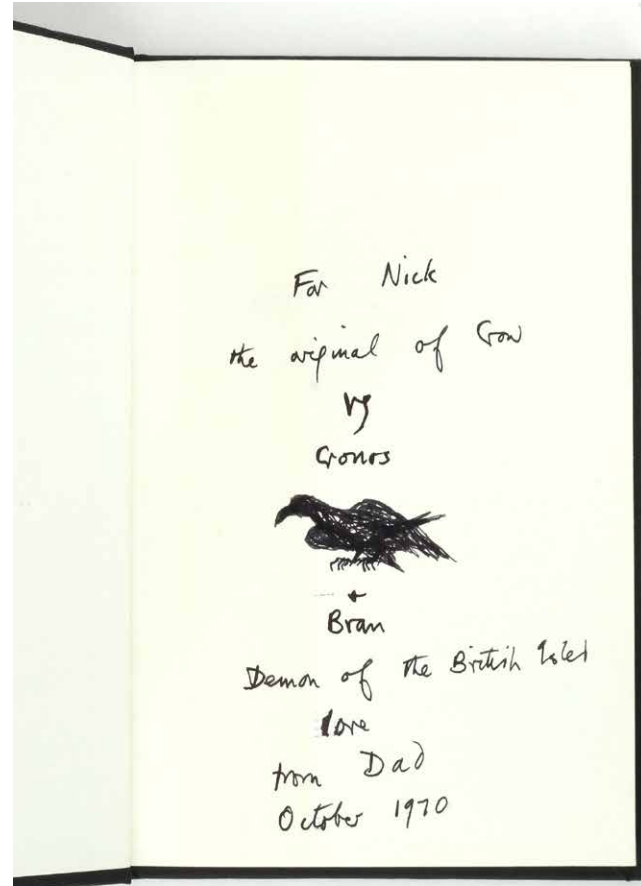 For Nick
the original of Crow
by
Cronos
+
Bran
Demon of the British Isles
love
from Dad
October 1970